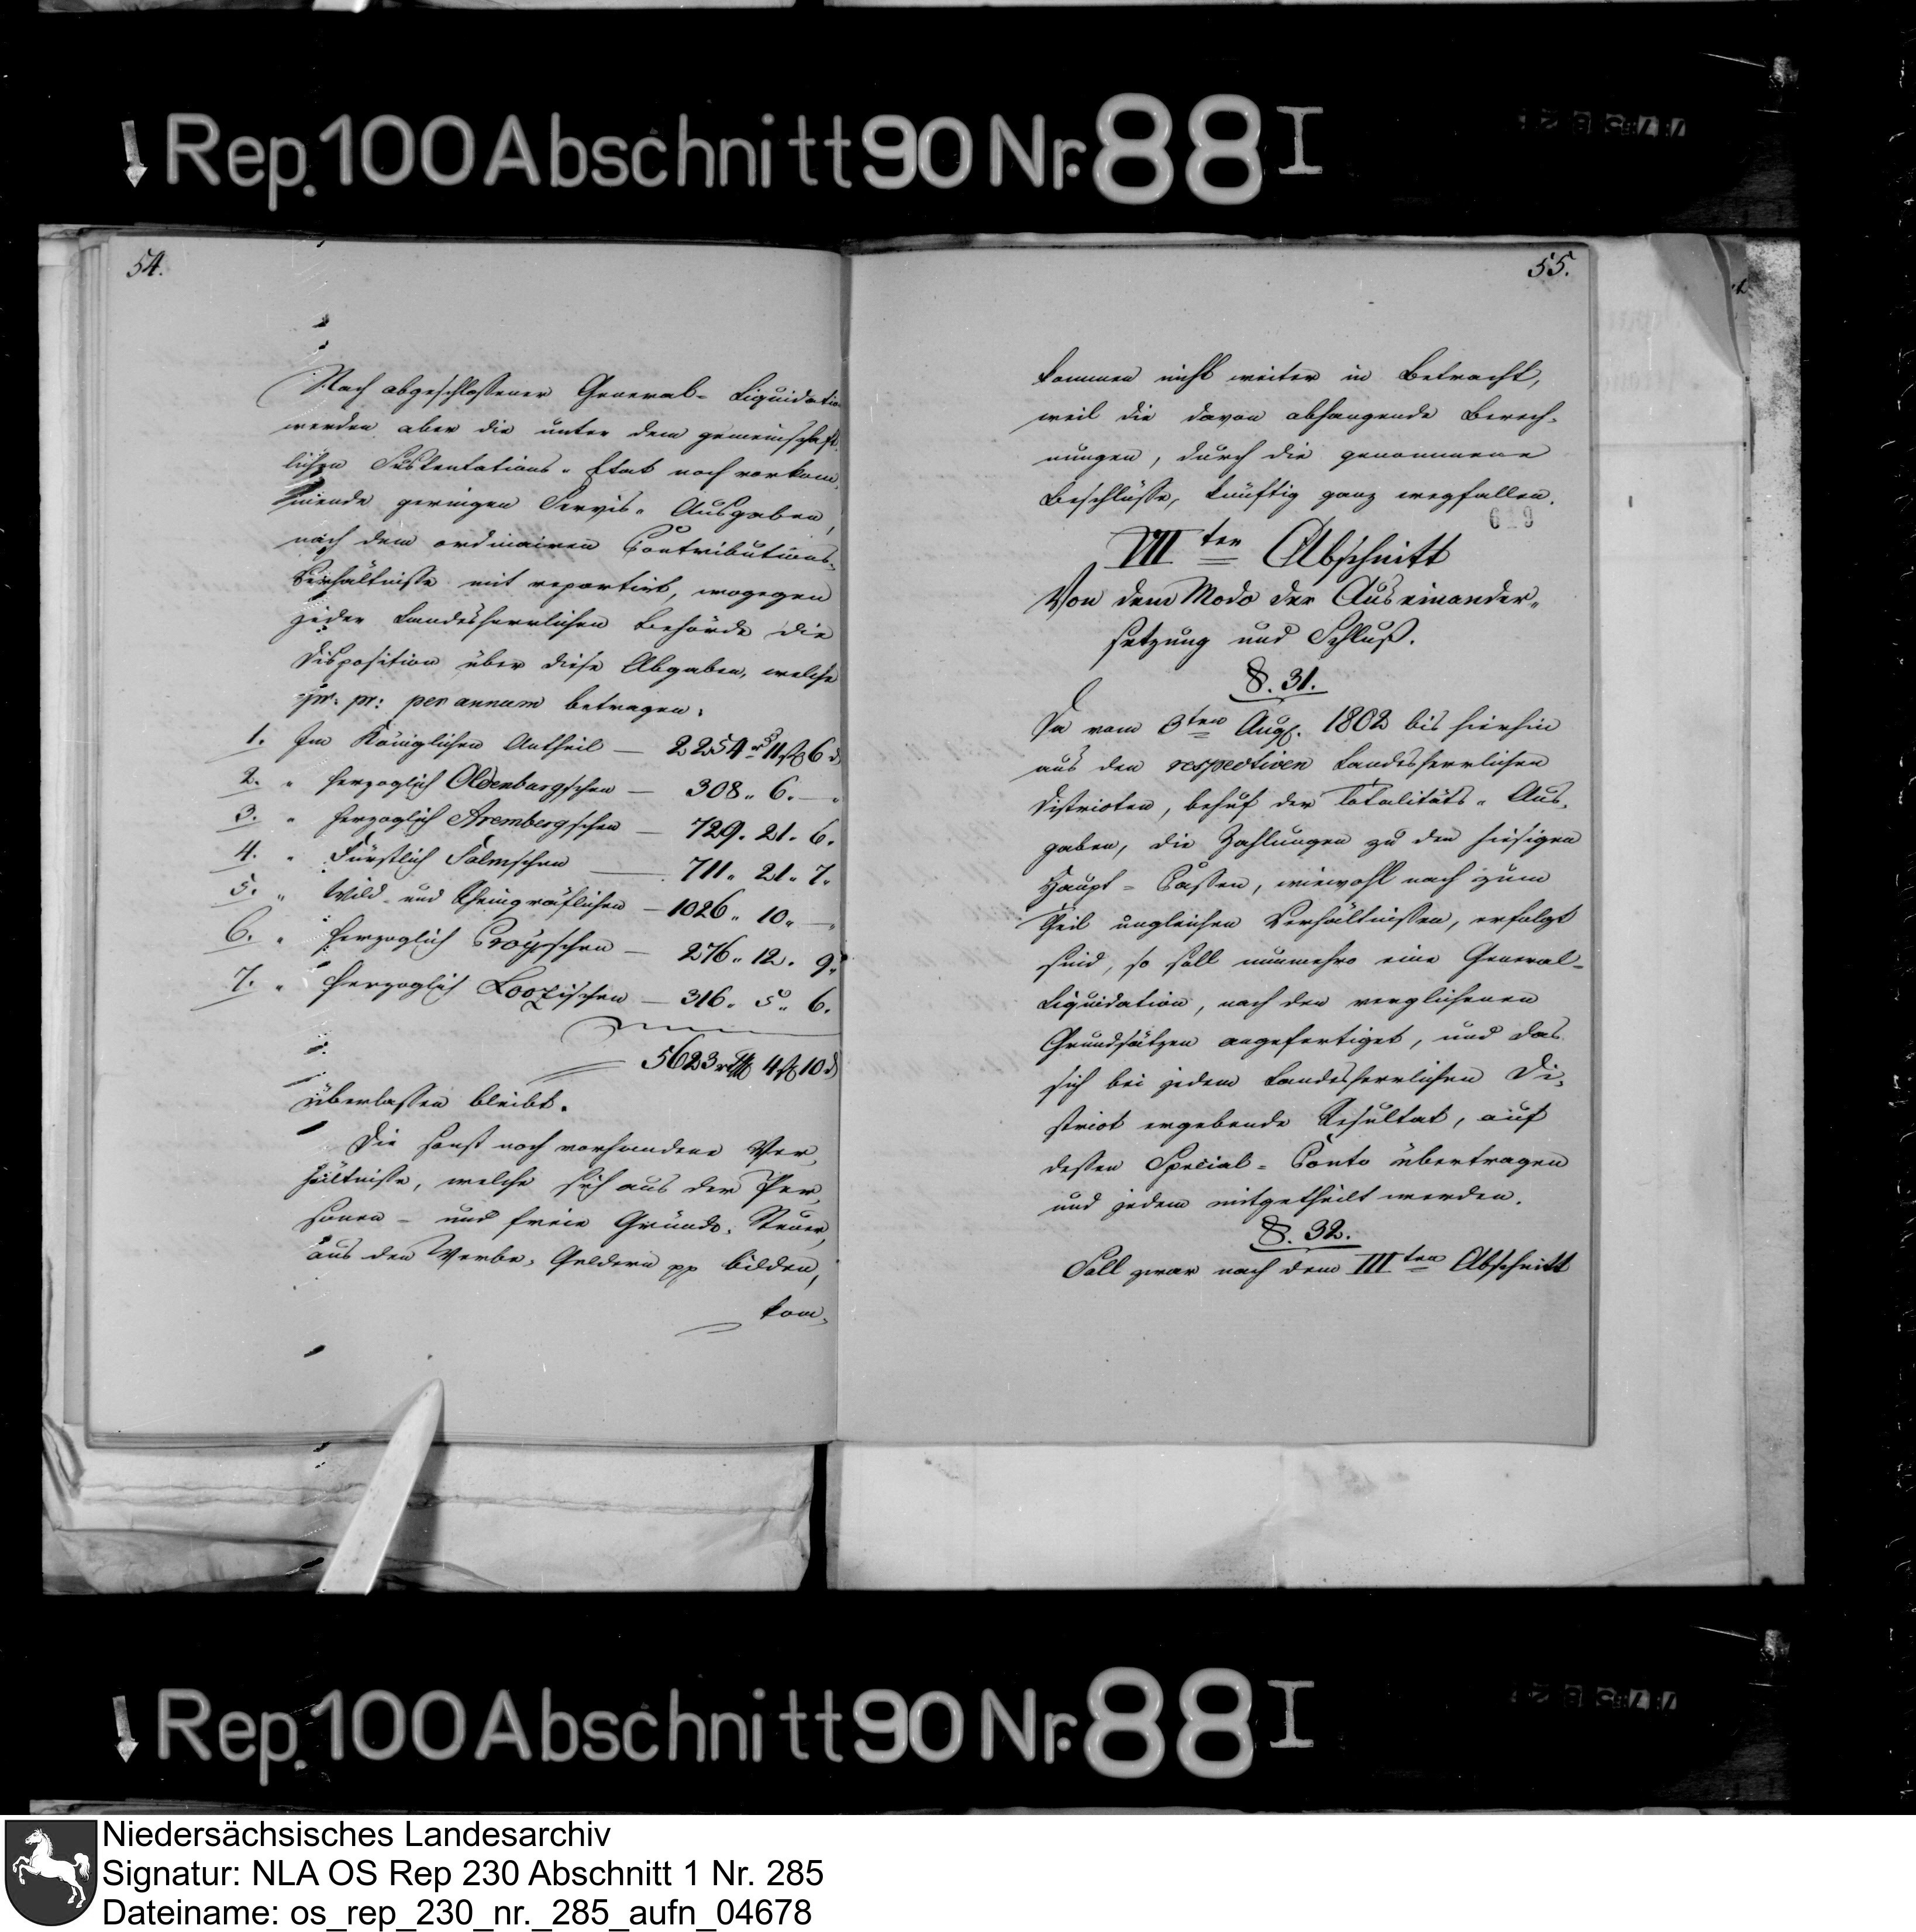 Rep. 100 Abschnitt 90 Nr. 88 I
54.
Nach abgeschlossener General- Liquidation
werden aber die unter dem gemeinschaft-
lichen Sustentations- Etat noch vorkom-
mende geringen Servis- Ausgaben,
nach dem ordinairen Contributions-
Verhältnisse mit repartirt, wogegen
jeder Landesherrlichen Behörde die
Disposition über diese Abgaben, welche
pr: pr: per annum betragen:
1. Im Königlichen Antheil — 2254 rt 11 ß 6 d
2. " Herzoglich Oldenburgschen — 308 " 6. —
3. " Herzoglich Arembergschen — 729. 21. 6.
4. " Fürstlich Salmschen — 711 " 21 " 7.
5. " Wild- und Rheingräflichen — 1026 " 10 " —
6. " Herzoglich Croÿschen — 276 " 12. 9.
7. " Herzoglich Loozischen — 316 " 5 " 6.
5623 rthlr 4 ß 10 d
überlassen bleibt.
Die sonst noch vorhandene Ver-
hältnisse, welche sich aus der Per-
sonen- und freien Grund- Steuer,
aus den Werbe- Geldern pp bilden,
kom-
55.
kommen nicht weiter in Betracht,
weil die davon abhangende Berech-
nungen, durch die genommene
Beschlüsse, künftig ganz wegfallen.
619
VIIter Abschnitt
Von dem Modo der Auseinander-
setzung und Schluß.
§. 31.
Da vom 3ten Aug. 1802 bis hierhin
aus den respectiven Landesherrlichen
Districten, behuf der Totalitäts- Aus-
gaben, die Zahlungen zu den hiesigen
Haupt- Cassen, wiewohl nach zum
Theil ungleichen Verhältnissen, erfolgt
sind, so soll nunmehro eine General-
Liquidation, nach den verglichenen
Grundsätzen angefertiget, und das
sich bei jedem Landesherrlichen Di-
strict ergebende Resultat, auf
dessen Special- Conto übertragen
und jedem mitgetheilt werden.
§. 32.
Soll zwar nach dem IIIten Abschnitt
Rep. 100 Abschnitt 90 Nr. 88 I
Niedersächsisches Landesarchiv
Signatur: NLA OS Rep 230 Abschnitt 1 Nr. 285
Dateiname: os_rep_230_nr._285_aufn_04678